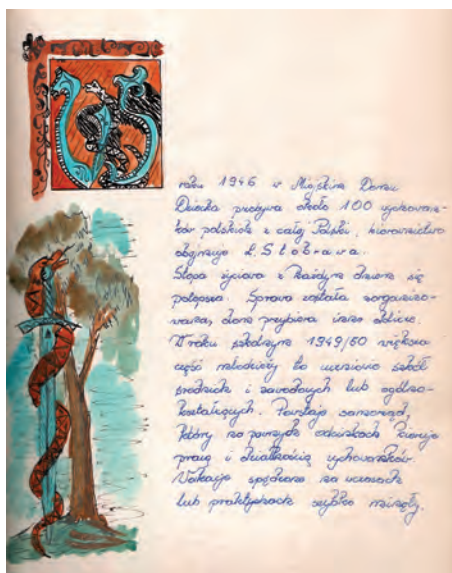 W
roku 1946 w Miejskim Domu
Dziecka przebywa około 100 wychowan-
ków polskich z całej Polski, kierownictwo
obejmuje L. Stobrawa.
Stopa życiowa z każdym dniem się
polepsza. Sprawa została zorganizo-
wana, dom przybiera inne oblicze.
W roku szkolnym 1949/50 większa
część młodzieży to uczniowie szkół
średnich i zawodowych lub ogólno-
kształcących. Powstaje samorząd,
który na odcinkach kieruje
pracą i działalnością wychowanków.
Wakacje spędzone na wczasach
lub praktykach szybko minęły.